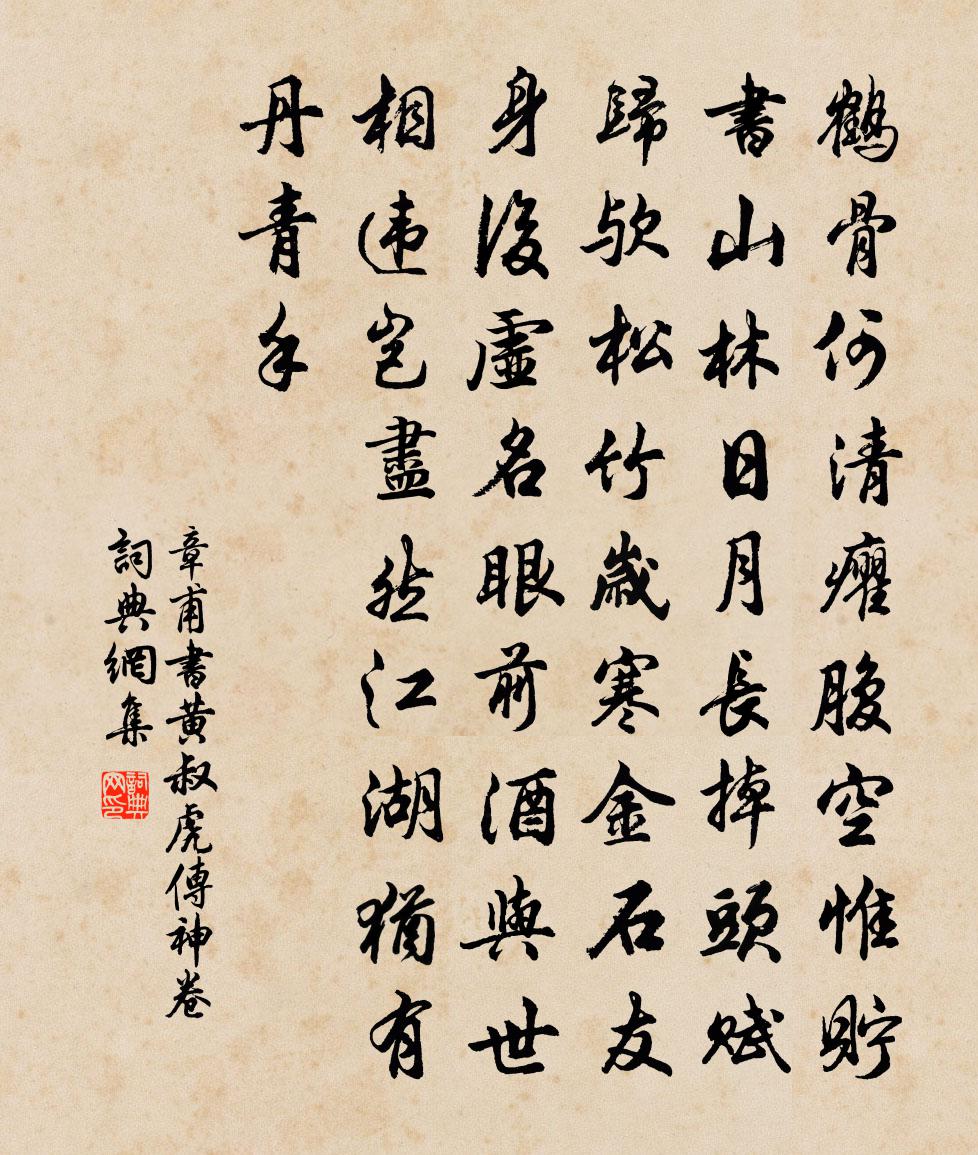 鶴骨何清癯腹空惟貯
書山林日月長掉頭賦
歸歟松竹歲寒金石友
身後虛名眼前酒與世
相违豈盡然江湖猶有
丹青手
章甫書黄叔虎傳神卷
詞典網集
詞典网印